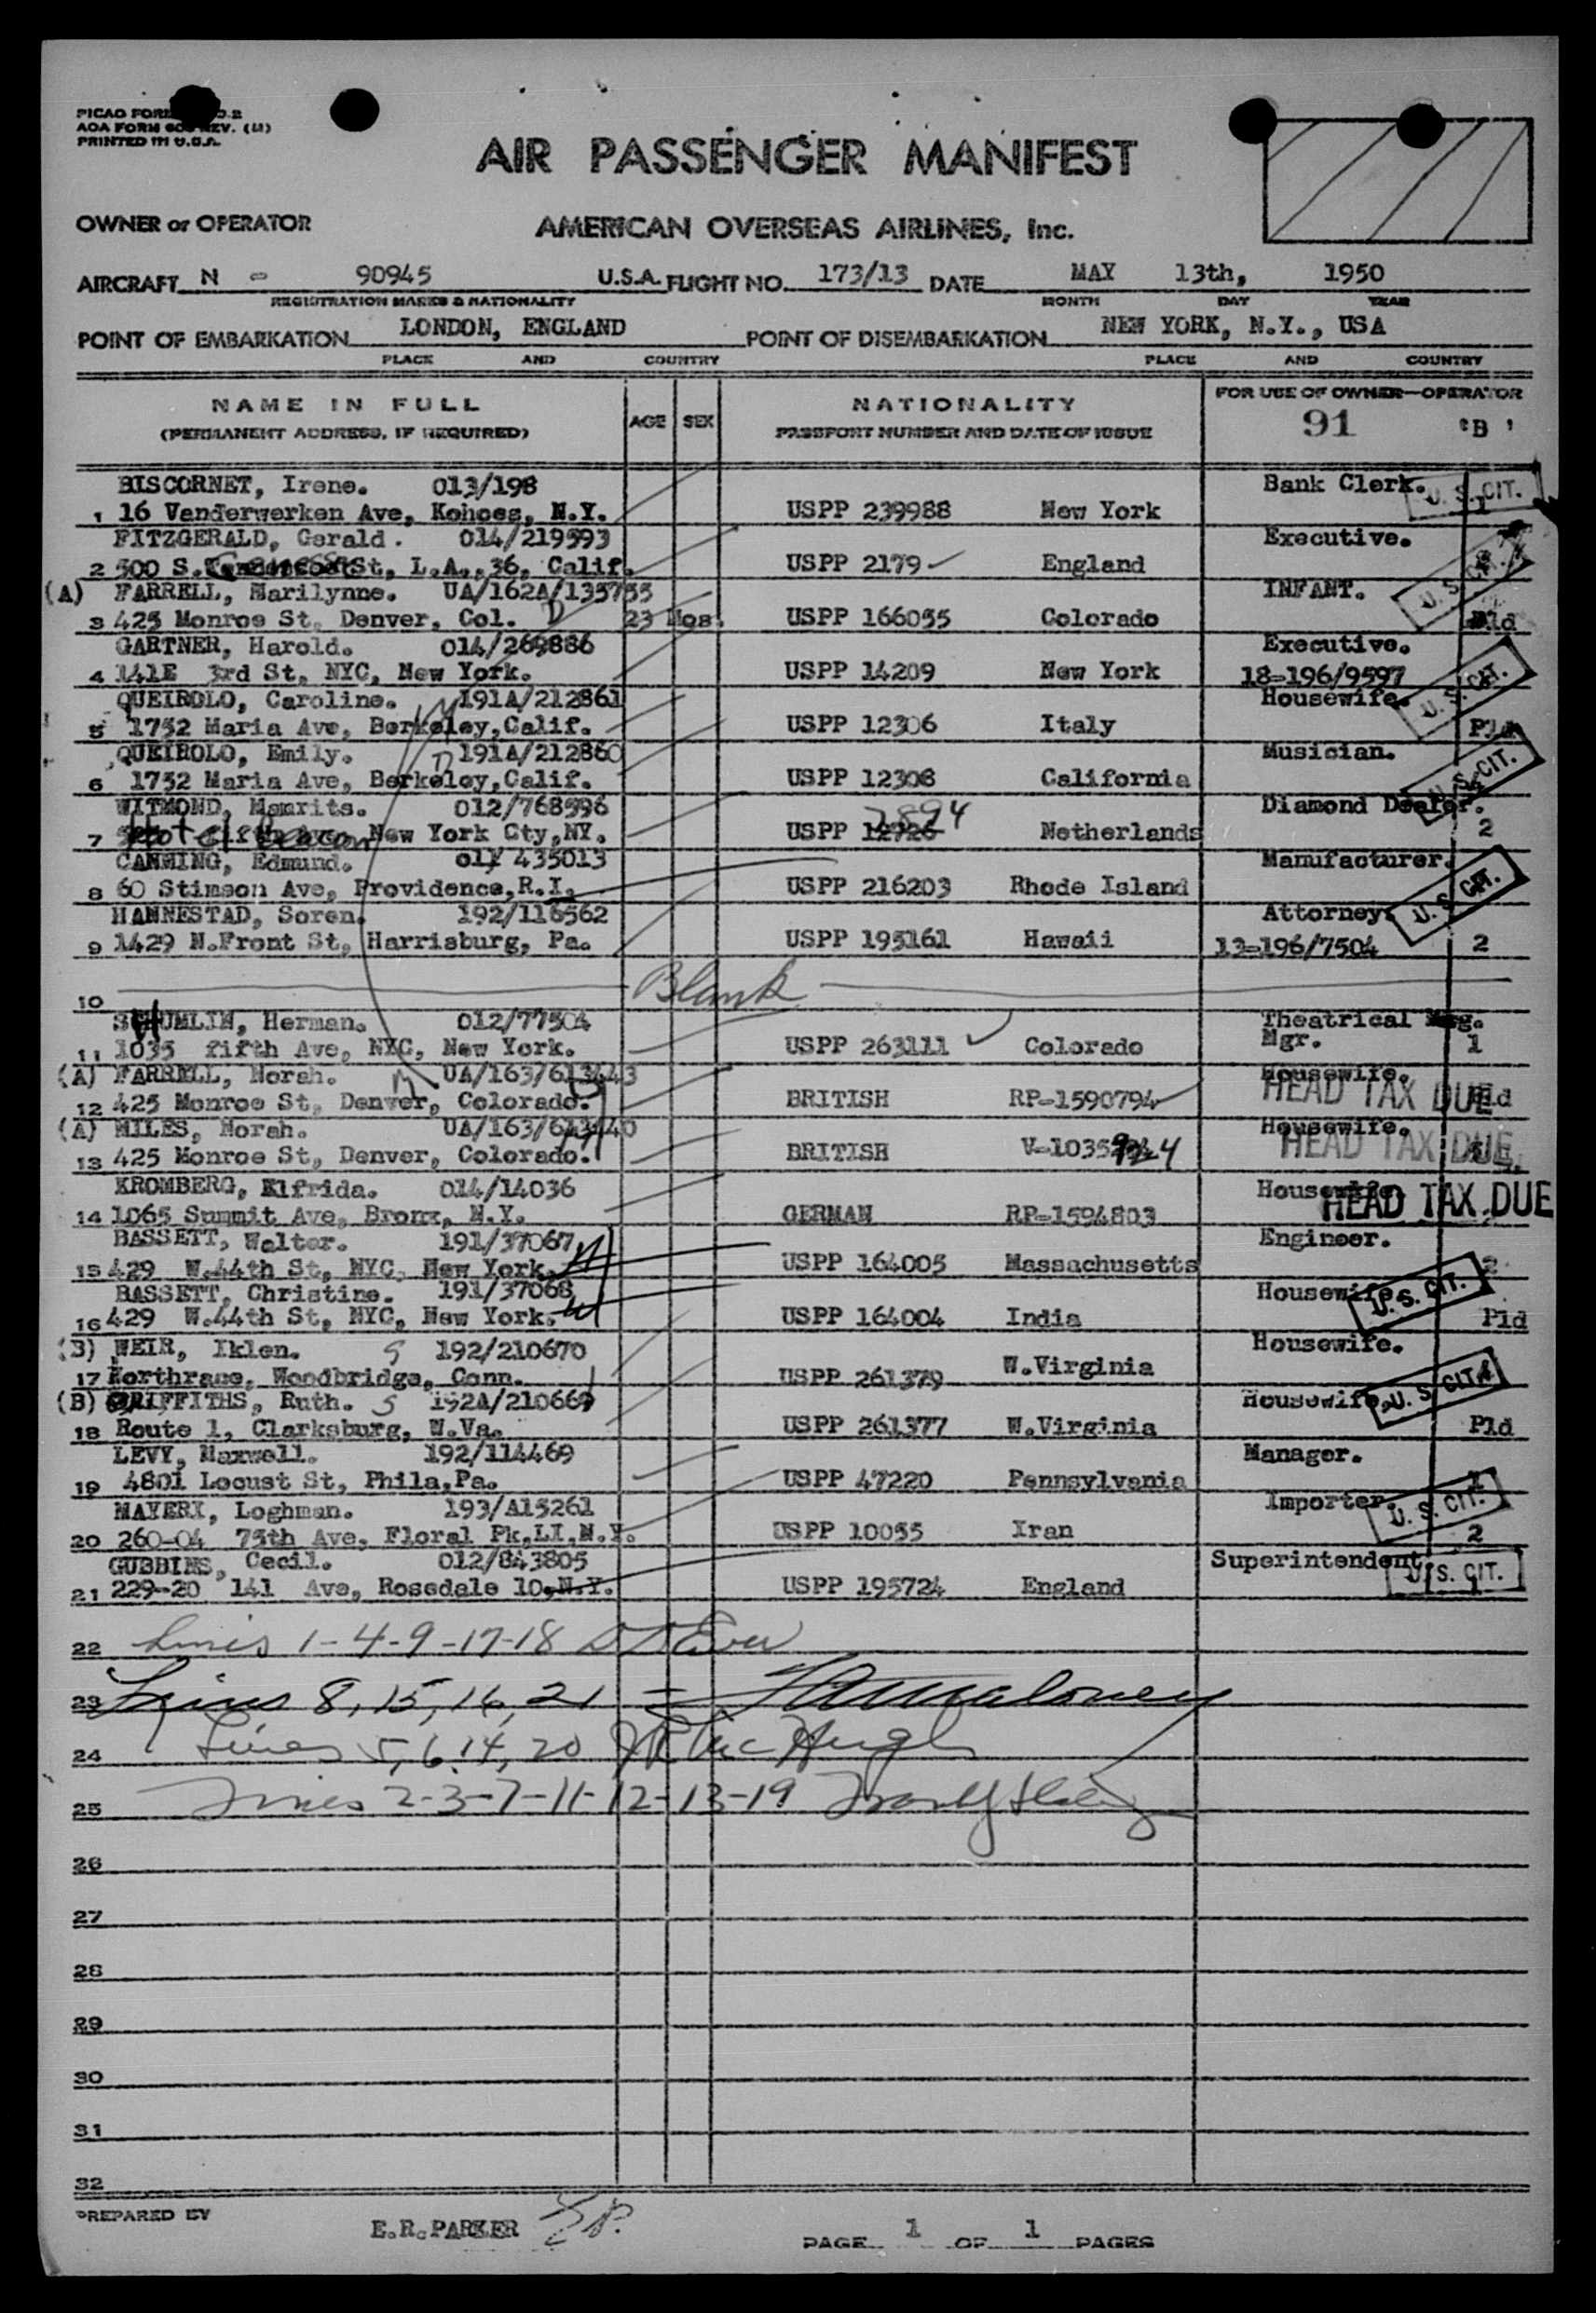 PICAO FORM NO.2
AOA FORM REV. (M)
PRINTED IN U.S.A.
AIR PASSENGER MANIFEST
OWNER or OPERATOR AMERICAN OVERSEAS AIRLINES, Inc.
AIRCRAFT N - 90945 U.S.A. FLIGHT NO. 173/13 DATE MAY 13th, 1950
REGISTRATION MARKS & NATIONALITY MONTH DAY YEAR
POINT OF EMBARKATION LONDON, ENGLAND POINT OF DISEMBARKATION NEW YORK, N.Y., USA
PLACE AND COUNTRY PLACE AND COUNTRY
NAME IN FULL AGE SEX NATIONALITY FOR USE OF OWNER—OPERATOR
(PERMANENT ADDRESS, IF REQUIRED) PASSPORT NUMBER AND DATE OF ISSUE 91 'B'
BISCORNET, Irene. 013/198 Bank Clerk. U.S. CIT.
1 16 Vanderwerken Ave, Kohoes, N.Y. USPP 239988 New York 1
FITZGERALD, Gerald. 014/219593 Executive.
2 500 S. St, L.A., 36, Calif. USPP 2179 England U.S. CIT.
(A) FARRELL, Marilynne. UA/162A/135755 INFANT.
3 425 Monroe St, Denver, Col. 23 Mos. USPP 166055 Colorado Pld
GARTNER, Harold. 014/269886 Executive.
4 141E 3rd St, NYC, New York. USPP 14209 New York 18-196/9597
QUEIROLO, Caroline. 191A/212861 Housewife. U.S. CIT.
5 1732 Maria Ave, Berkeley, Calif. USPP 12306 Italy Pld
QUEIROLO, Emily. 191A/212860 Musician.
6 1732 Maria Ave, Berkeley, Calif. USPP 12308 California U.S. CIT.
WITMOND, Maurits. 012/768596 2894 Diamond Dealer.
7 Hotel Beacon New York Cty, NY. USPP 12726 Netherlands 2
CANNING, Edmund. 435013 Manufacturer.
8 60 Stimson Ave, Providence, R.I. USPP 216203 Rhode Island U.S. CIT.
HANNESTAD, Soren. 192/116562 Attorney.
9 1429 N.Front St, Harrisburg, Pa. USPP 195161 Hawaii 13-196/7504 2
10 Blank
SHUMLIN, Herman. 012/77504 Theatrical Mtg.
11 1035 fifth Ave, NYC, New York. USPP 263111 Colorado Mgr. 1
(A) FARRELL, Norah. UA/163/613443 Housewife.
12 425 Monroe St, Denver, Colorado. BRITISH RP-1590794 HEAD TAX DUE Pld
(A) MILES, Norah. UA/163/613440 Housewife.
13 425 Monroe St, Denver, Colorado. BRITISH HEAD TAX DUE
KROMBERG, Elfrida. 014/14036 Housewife.
14 1065 Summit Ave, Bronx, N.Y. GERMAN RP-1594803 HEAD TAX DUE
BASSETT, Walter. 191/37067 Engineer.
15 429 W.44th St, NYC, New York. USPP 164005 Massachusetts 2
BASSETT, Christine. 191/37068 Housewife. U.S. CIT.
16 429 W.44th St, NYC, New York. USPP 164004 India Pld
(B) WEIR, Iklen. 192/210670 Housewife.
17 Northrace, Woodbridge, Conn. USPP 261379 W.Virginia U.S. CIT.
(B) GRIFFITHS, Ruth. 192A/210669 Housewife,
18 Route 1, Clarksburg, W.Va. USPP 261377 W.Virginia Pld
LEVY, Maxwell. 192/114469 Manager.
19 4801 Locust St, Phila, Pa. USPP 47220 Pennsylvania 1
MAYERI, Loghman. 193/A15261 Importer. U.S. CIT.
20 260-04 75th Ave, Floral Pk, LI, N.Y. USPP 10055 Iran 2
GUBBINS, Cecil. 012/843805 Superintendent.
21 229-20 141 Ave, Rosedale 10, N.Y. USPP 195724 England U.S. CIT.
22 Lines 1-4-9-17-18
23 Lines 8, 15, 16, 21 - Maloney
24 Lines 5, 6, 14, 20 McHugh
25 Lines 2-3-7-11-12-13-19
26
27
28
29
30
31
32
PREPARED BY E.R. PARKER
PAGE 1 OF 1 PAGES